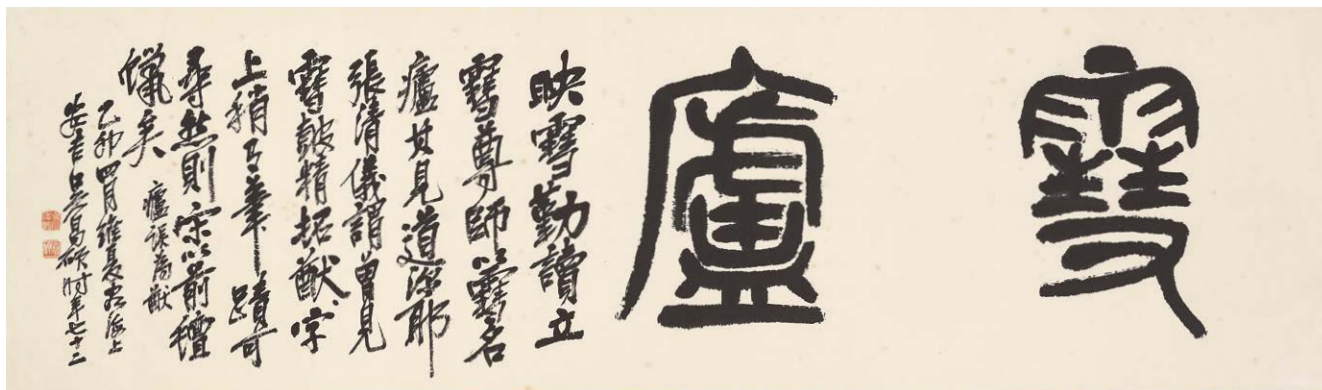 雪廬
映雪勤讀立
雪尊師以雪名
廬其見道深耶
張清儀謂曾見
雪皷精拓猷字
上稍有筆蹟可
尋然則宋以前氊
蠟矣 廬誤為猷
乙卯四月維夏客海上
安吉吳昌碩時年七十二